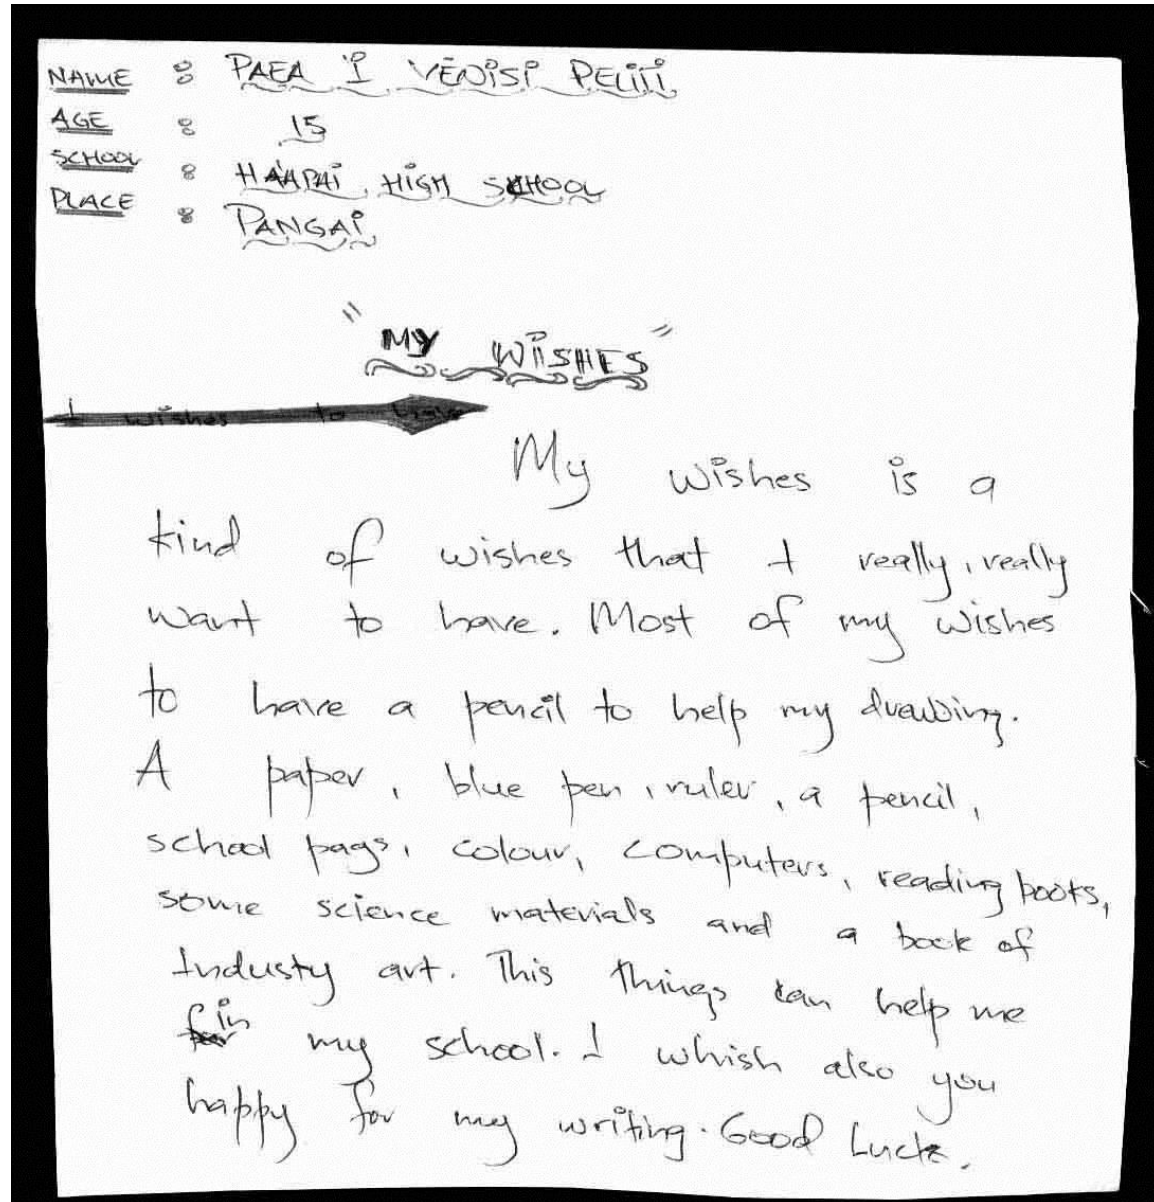 NAME : PAEA 'I VENISI PELITI
AGE : 15
SCHOOL : HA'APAI HIGH SCHOOL
PLACE : PANGAI
"MY WISHES"
I wishes to have
My wishes is a
kind of wishes that I really, really
want to have. Most of my wishes
to have a pencil to help my drawing.
A paper, blue pen, ruler, a pencil,
school pags, colour, computers, reading books,
some science materials and a book of
Industy art. This things can help me
in my school. I whish also you
happy for my writing. Good Luck.